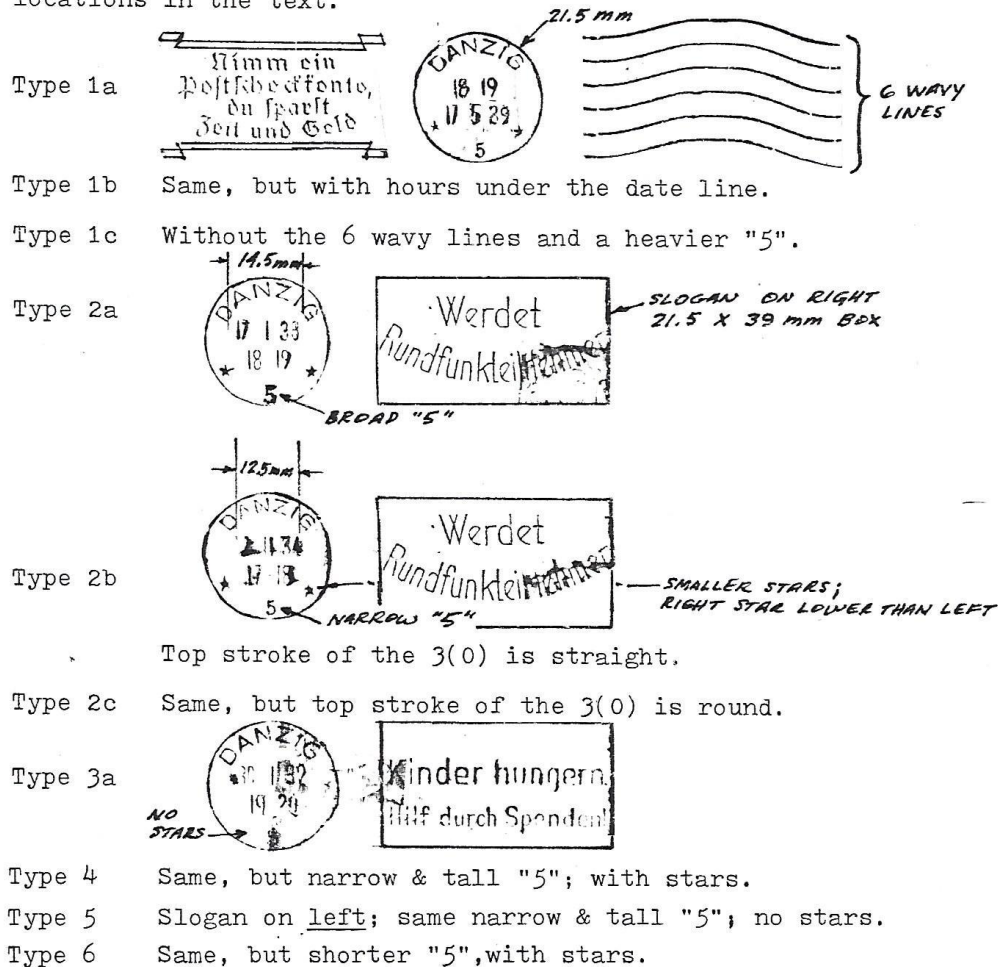 locations in the text.
21.5 mm
Type 1a
Nimm ein
Postscheckkonto,
du sparst
Zeit und Geld
DANZIG
18 19
17 5 29
5
6 WAVY
LINES
Type 1b Same, but with hours under the date line.
Type 1c Without the 6 wavy lines and a heavier "5".
14.5mm
Type 2a
DANZIG
17 1 33
18 19
5
Werdet
Rundfunkteilnehmer
SLOGAN ON RIGHT
21.5 X 39 mm BOX
BROAD "5"
12.5mm
Type 2b
DANZIG
11 34
5
Werdet
Rundfunkteilnehmer
SMALLER STARS;
RIGHT STAR LOWER THAN LEFT
NARROW "5"
Top stroke of the 3(0) is straight.
Type 2c Same, but top stroke of the 3(0) is round.
Type 3a
DANZIG
19 20
Kinder hungern.
Hilf durch Spenden!
NO
STARS
Type 4 Same, but narrow & tall "5"; with stars.
Type 5 Slogan on left; same narrow & tall "5"; no stars.
Type 6 Same, but shorter "5",with stars.